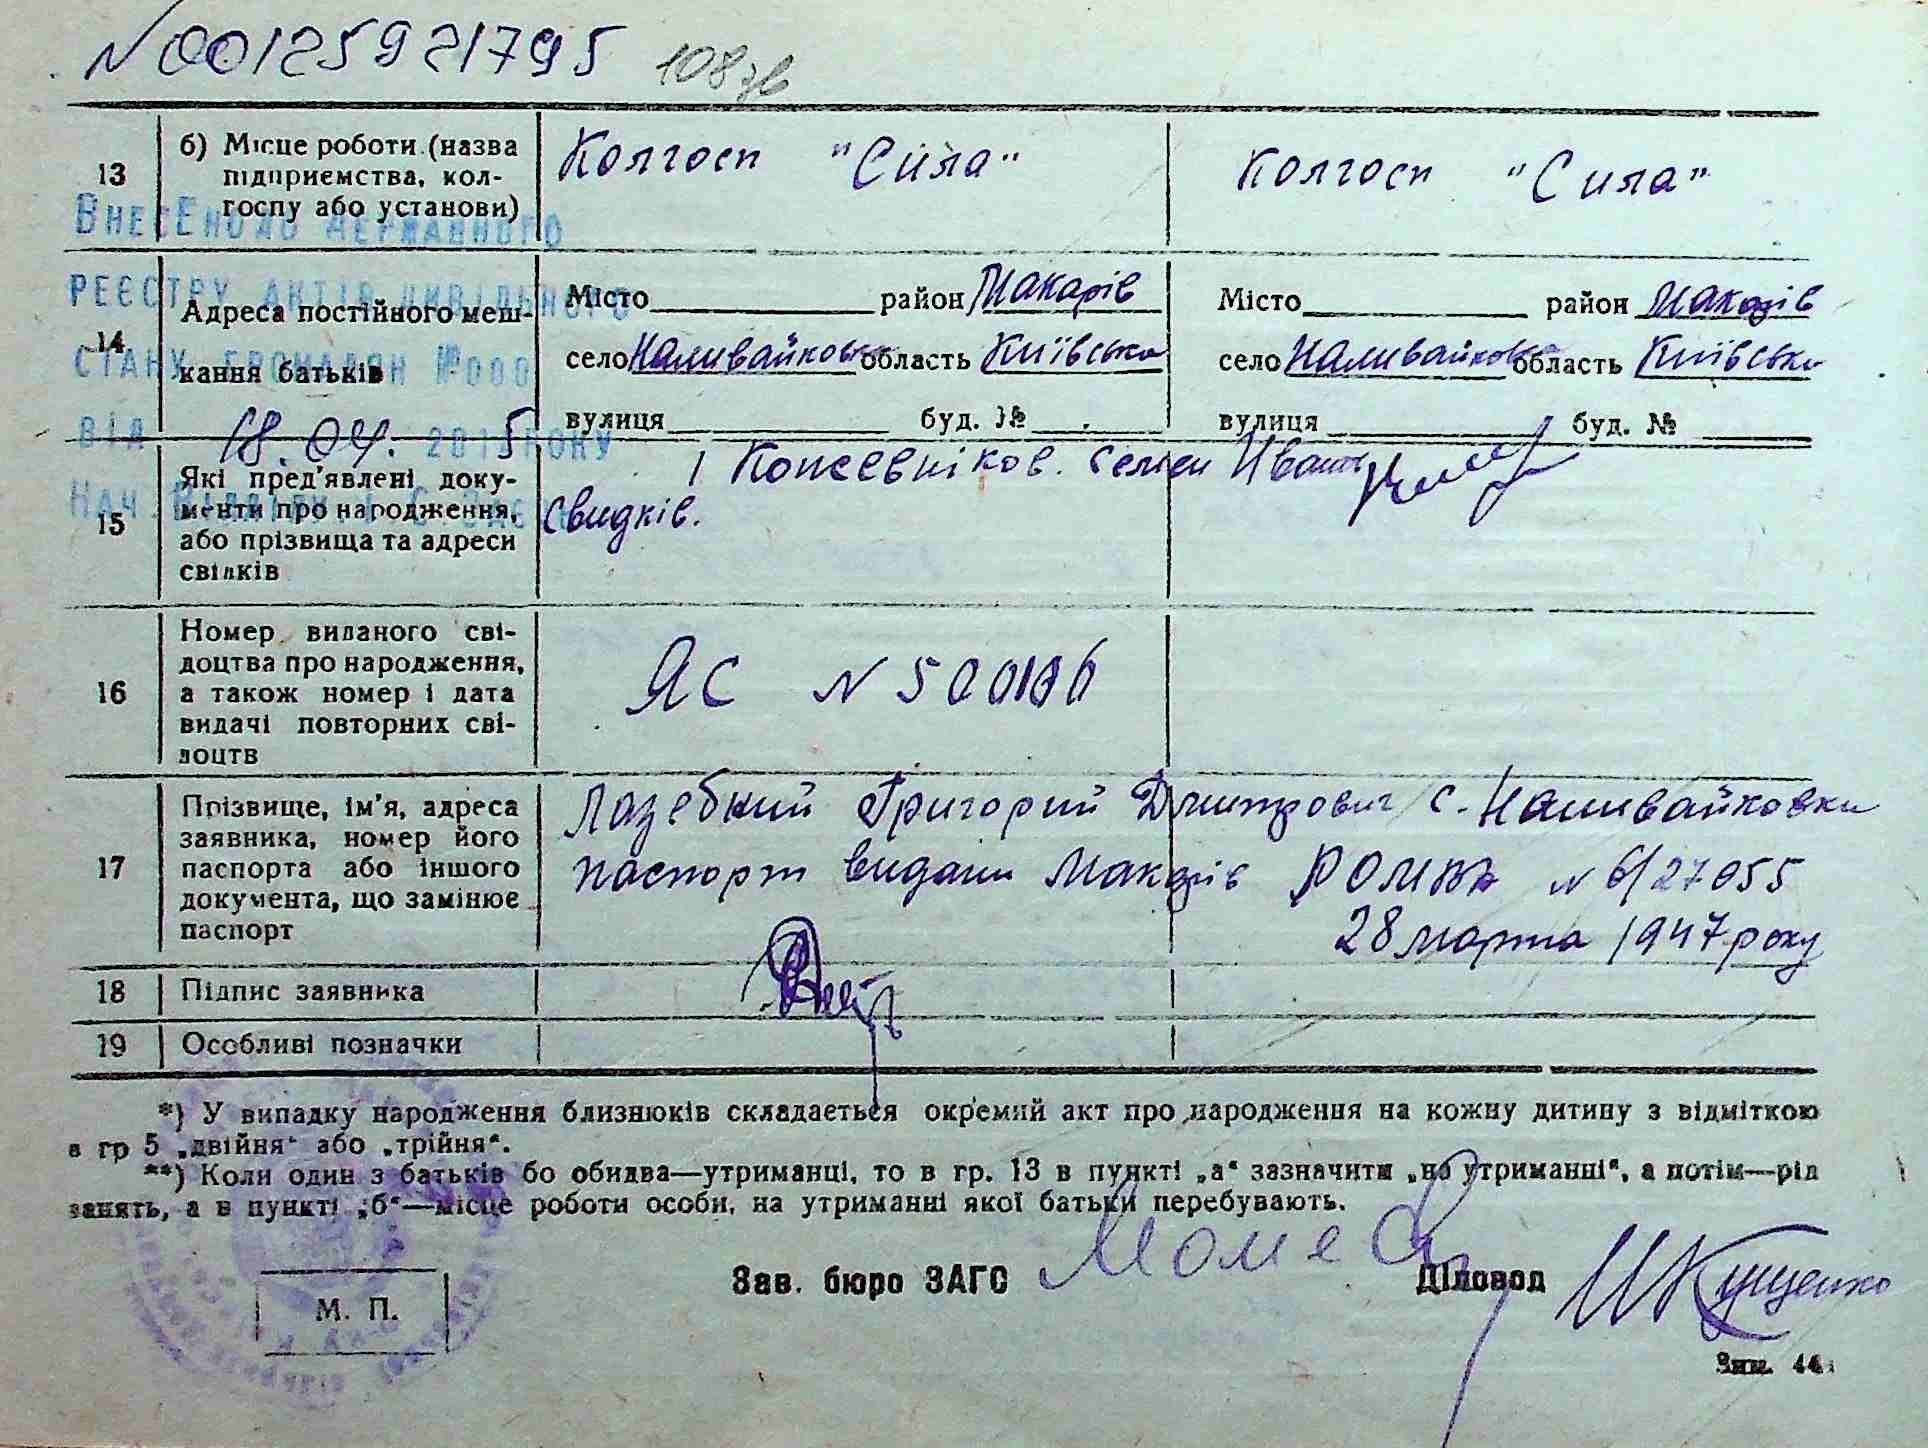 N00125921795 108зв
13 б) Місце роботи (назва підприємства, колгоспу або установи) Колгосп "Сила" Колгосп "Сила"
ВнесЕно до державного
реєстру актів цивільного
стану громадян №000
від 18.04. 2015 року
Нач. відділу
14 Адреса постійного мешкання батьків
Місто район Макарів Місто район Макарів
село Наливайковка область Київська село Наливайковка область Київська
вулиця буд. № вулиця буд. №
15 Які пред'явлені документи про народження, або прізвища та адреси свідків
1 Кожевніков. Семен Иванов
Свидків.
16 Номер виданого свідоцтва про народження, а також номер і дата видачі повторних свідоцтв
ЯС N
17 Прізвище, ім'я, адреса заявника, номер його паспорта або іншого документа, що замінює паспорт
Лазебний Григорий Дмитрович с. Наливайковки
паспорт видани Макарів N 6/27055
28 марта 1947 року
18 Підпис заявника
19 Особливі позначки
*) У випадку народження близнюків складається окремий акт про народження на кожну дитину з відміткою
в гр 5 „двійня" або „трійня".
**) Коли один з батьків бо обидва—утриманці, то в гр. 13 в пункті „а" зазначити „на утриманні", а потім—рід
занять, а в пункті „б"—місце роботи особи, на утриманні якої батьки перебувають.
Зав. бюро ЗАГС Діловод Кущенко
М. П.
Зам. 44